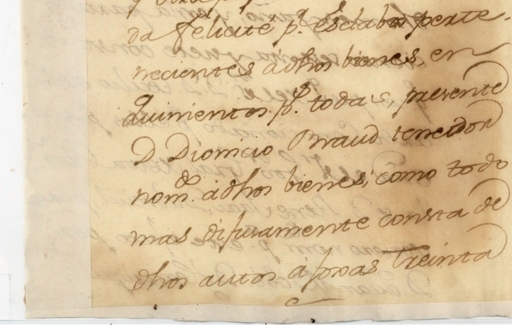 da felicite p.r esclabas perte-
necientes adhos bienes en
quinientos p.s todas, presente
D Dionicio Braud tenedor
nom.do adhos bienes, como todo
mas difusamente consta de
dhos autos á foxas treinta